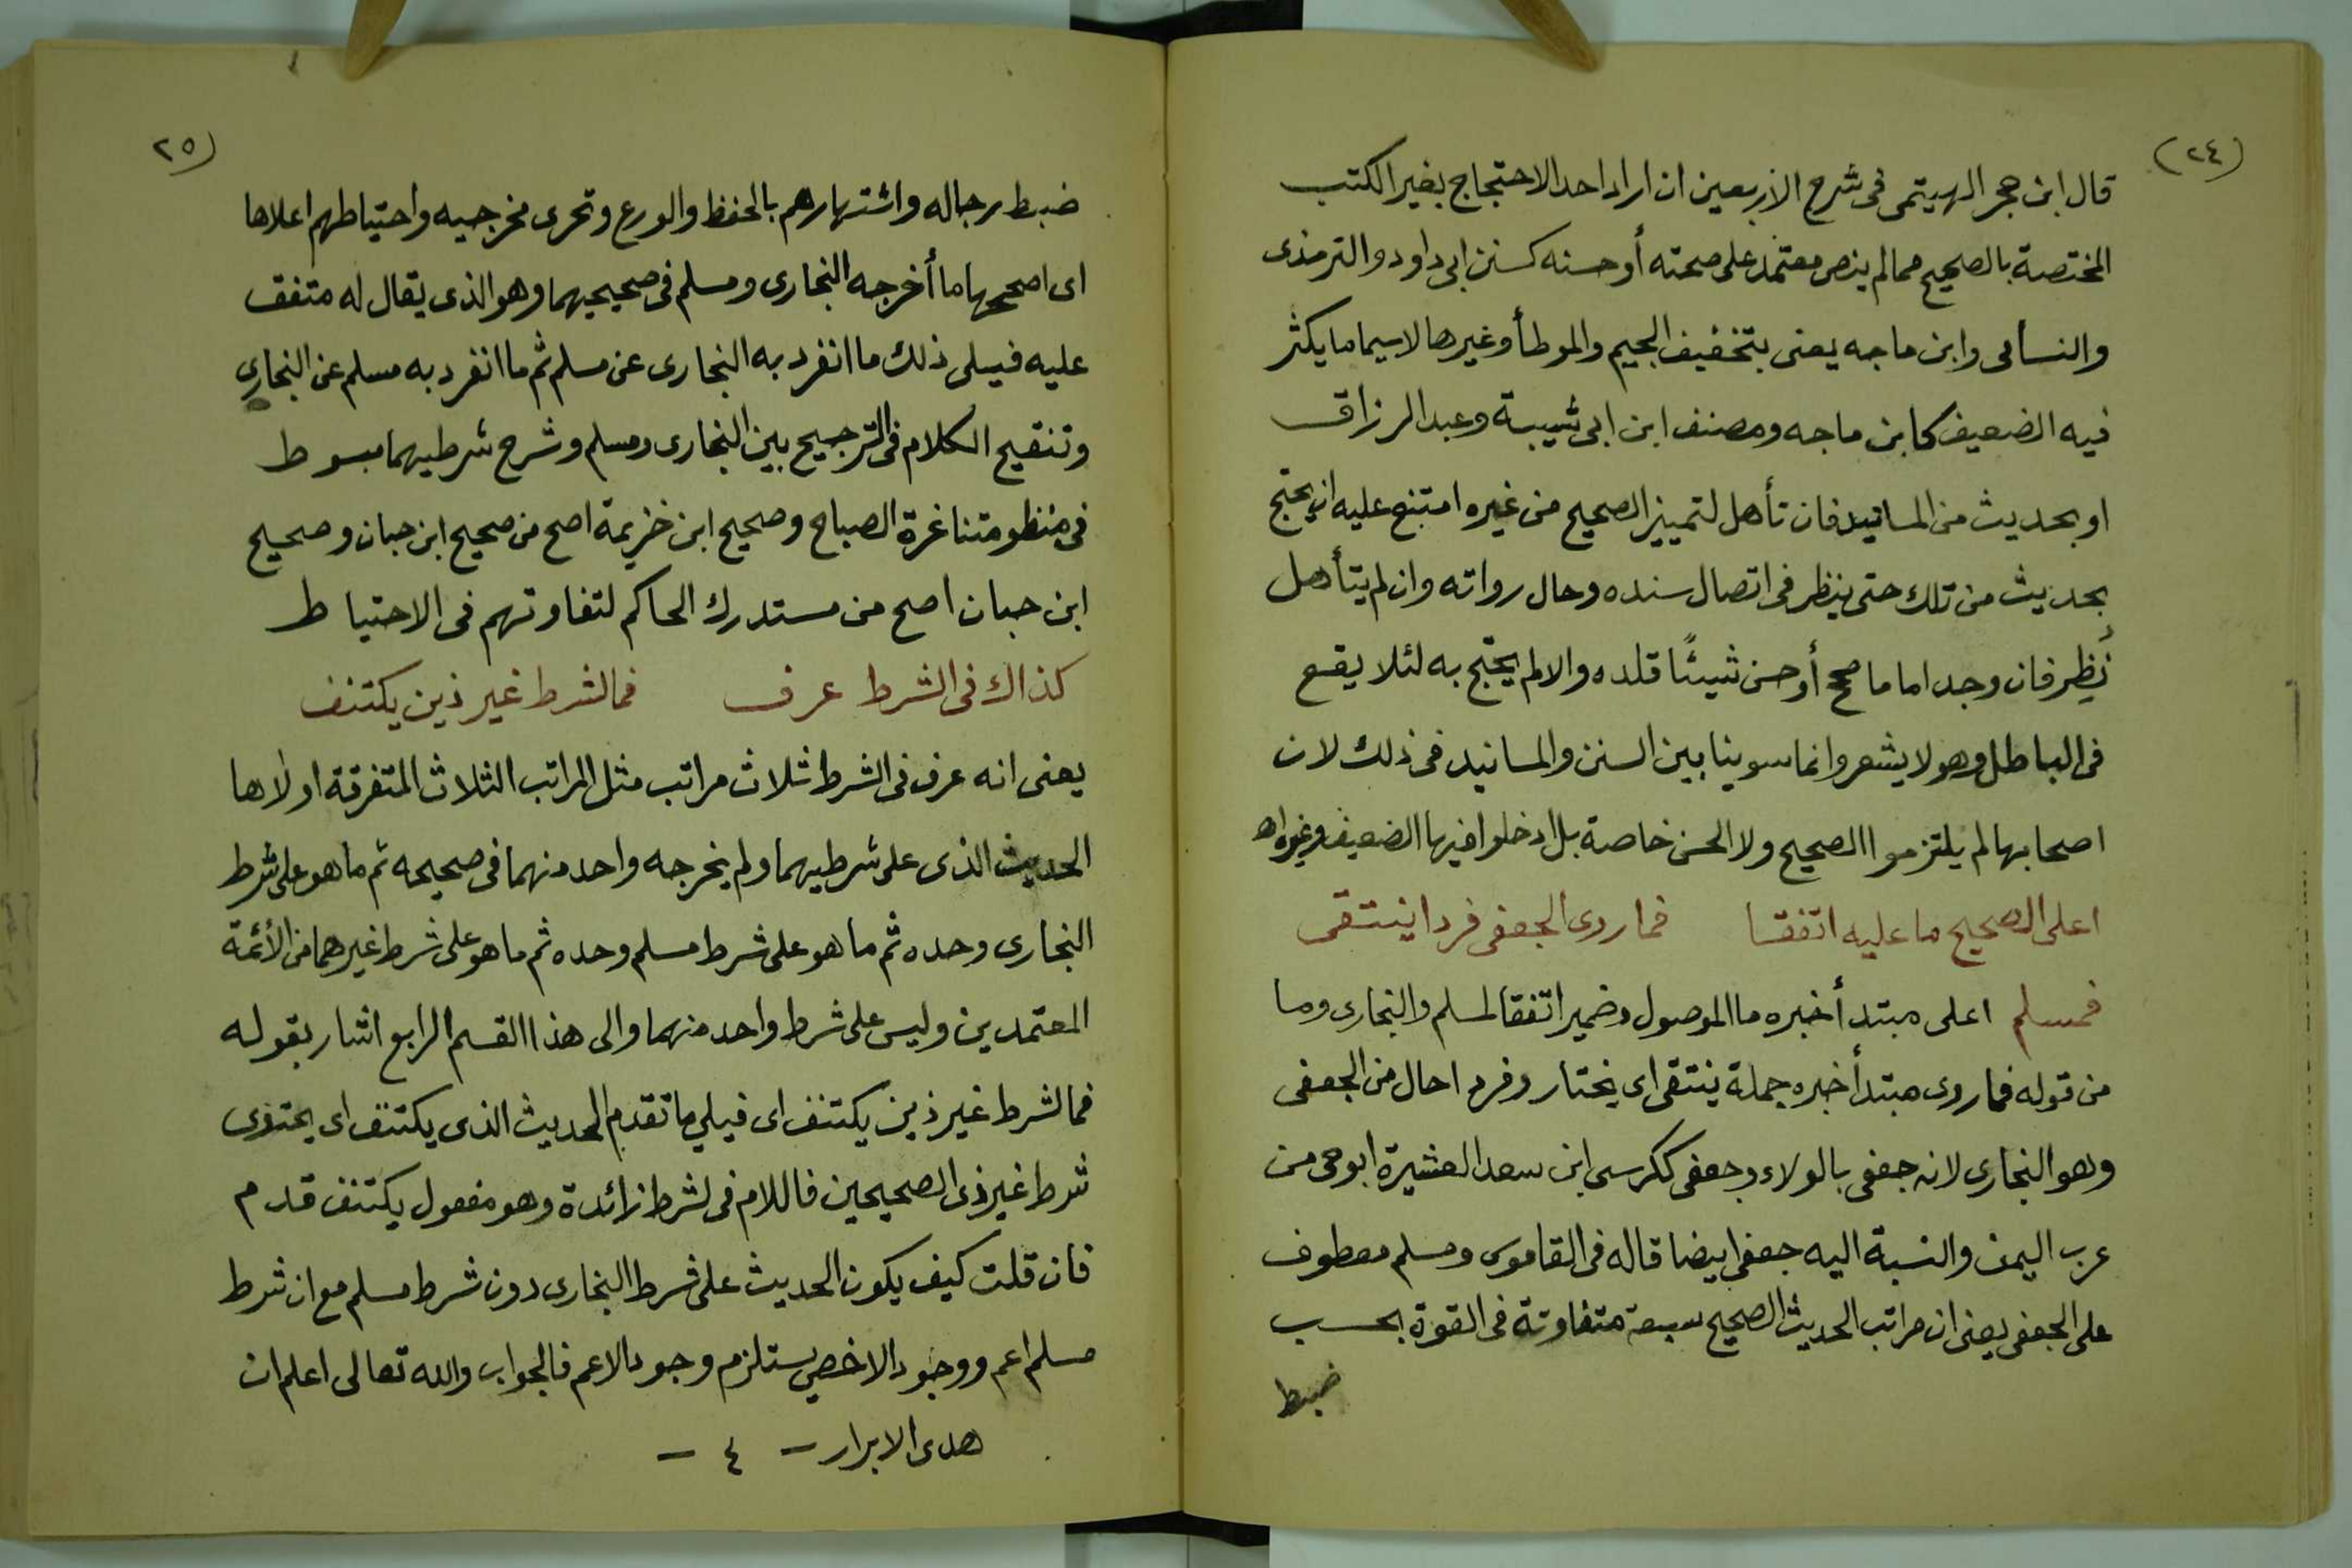 (٢٤)
قال ابن حجر الهيتمى فى شرح الاربعين ان اراد احد الاحتجاج بغير الكتب
المختصة بالصحيح مما لم ينص معتمد على صحته أو حسنه كسنن ابى داود والترمذى
والنسائى وابن ماجه يعنى بتخفيف الجيم والموطأ وغيرها لاسيما ما يكثر
فيه الضعيف كابن ماجه ومصنف ابن ابى شيبة وعبد الرزاق
او بحديث من المسانيد فان تأهل لتمييز الصحيح من غيره امتنع عليه ان يحتج
بحديث من تلك حتى ينظر فى اتصال سنده وحال رواته وان لم يتأهل
نُظِر فان وجد اماما صحح أو حسن شيئًا قلده والا لم يحتج به لئلا يقع
فى الباطل وهو لا يشعر وانما سوينا بين السنن والمسانيد فى ذلك لان
اصحابها لم يلتزموا الصحيح ولا الحسن خاصة بل ادخلوا فيها الضعيف وغيره اهـ
اعلى الصحيح ما عليه اتفقا فما روى الجعفى فردا ينتقى
فمسلم اعلى مبتدأ خبره ما الموصول وضمير اتفقا لمسلم والبخارى وما
من قوله فما روى مبتدأ خبره جملة ينتقى اى يختار وفردا حال من الجعفى
وهو البخارى لانه جعفى بالولاء وجعفى ككرسى ابن سعد العشيرة ابو حى من
عرب اليمن والنسبة اليه جعفى ايضا قاله فى القاموس ومسلم معطوف
على الجعفى يعنى ان مراتب الحديث الصحيح سبعة متفاوتة فى القوة بحسب
ضبط
(٢٥
ضبط رجاله واشتهارهم بالحفظ والورع وتحرى مخرجيه واحتياطهم اعلاها
اى اصحها ما أخرجه البخارى ومسلم فى صحيحيهما وهو الذى يقال له متفق
عليه فيلى ذلك ما انفرد به البخارى عن مسلم ثم ما انفرد به مسلم عن البخارى
وتنقيح الكلام فى الترجيح بين البخارى ومسلم وشرح شرطيهما مبسوط
فى منظومتنا غرة الصباح وصحيح ابن خزيمة اصح من صحيح ابن حبان وصحيح
ابن حبان اصح من مستدرك الحاكم لتفاوتهم فى الاحتياط
كذاك فى الشرط عرف فما لشرط غير ذين يكتنف
يعنى انه عرف فى الشرط ثلاث مراتب مثل المراتب الثلاث المتفرقة اولاها
الحديث الذى على شرطيهما ولم يخرجه واحد منهما فى صحيحه ثم ما هو على شرط
البخارى وحده ثم ما هو على شرط مسلم وحده ثم ما هو على شرط غيرهما من الأئمة
المعتمدين وليس على شرط واحد منهما والى هذا القسم الرابع اشار بقوله
فما لشرط غير ذين يكتنف اى فيلي ما تقدم الحديث الذى يكتنف اى يحتوى
شرط غير ذى الصحيحين فاللام فى لشرط زائدة وهو مفعول يكتنف قدم
فان قلت كيف يكون الحديث على شرط البخارى دون شرط مسلم مع ان شرط
مسلم اعم ووجود الاخص يستلزم وجود الاعم فالجواب والله تعالى اعلم ان
هدى الابرار - ٤ -